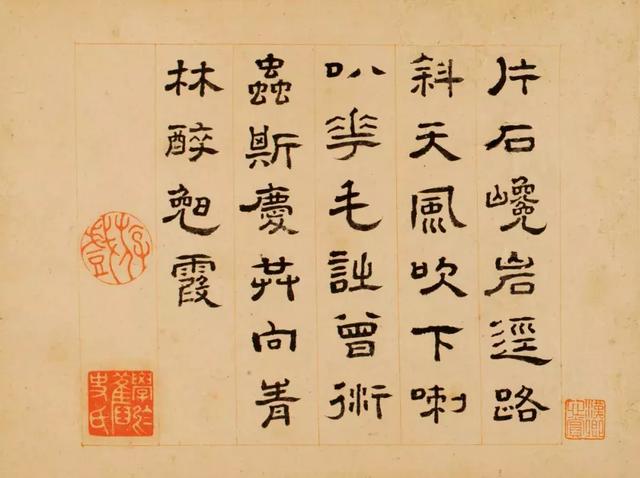 片石巉岩逕路
斜天風吹下喇
叭花毛詩曾衍
蟲斯慶共向青
林醉晚霞
游戲